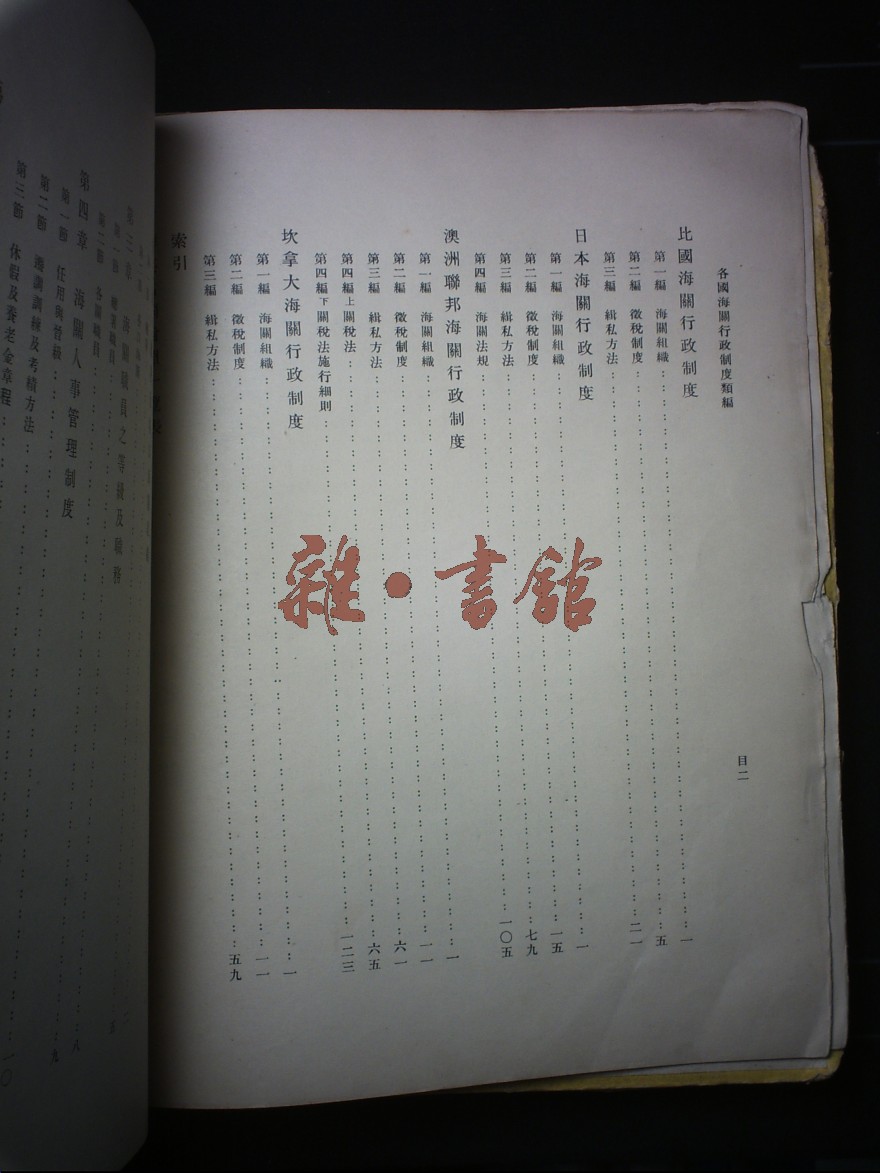 各國海關行政制度類編
目二
比國海關行政制度………一
第一編 海關組織………五
第二編 徵稅制度………二一
第三編 緝私方法………
日本海關行政制度………一
第一編 海關組織………一五
第二編 徵稅制度………七九
第三編 緝私方法………一〇五
第四編 海關法規………
澳洲聯邦海關行政制度………一
第一編 海關組織………一一
第二編 徵稅制度………六一
第三編 緝私方法………六五
第四編上 關稅法………一二三
第四編下 關稅法施行細則………
坎拿大海關行政制度………一
第一編 海關組織………一一
第二編 徵稅制度………五九
第三編 緝私方法………
索引
第三章 海關職員之等級及職務
第二節 各部職員
第四章 海關人事管理制度
第一節 任用與晉級………八
第二節 遷調訓練及考績方法………九
第三節 休假及養老金章程………一〇
雜·書館